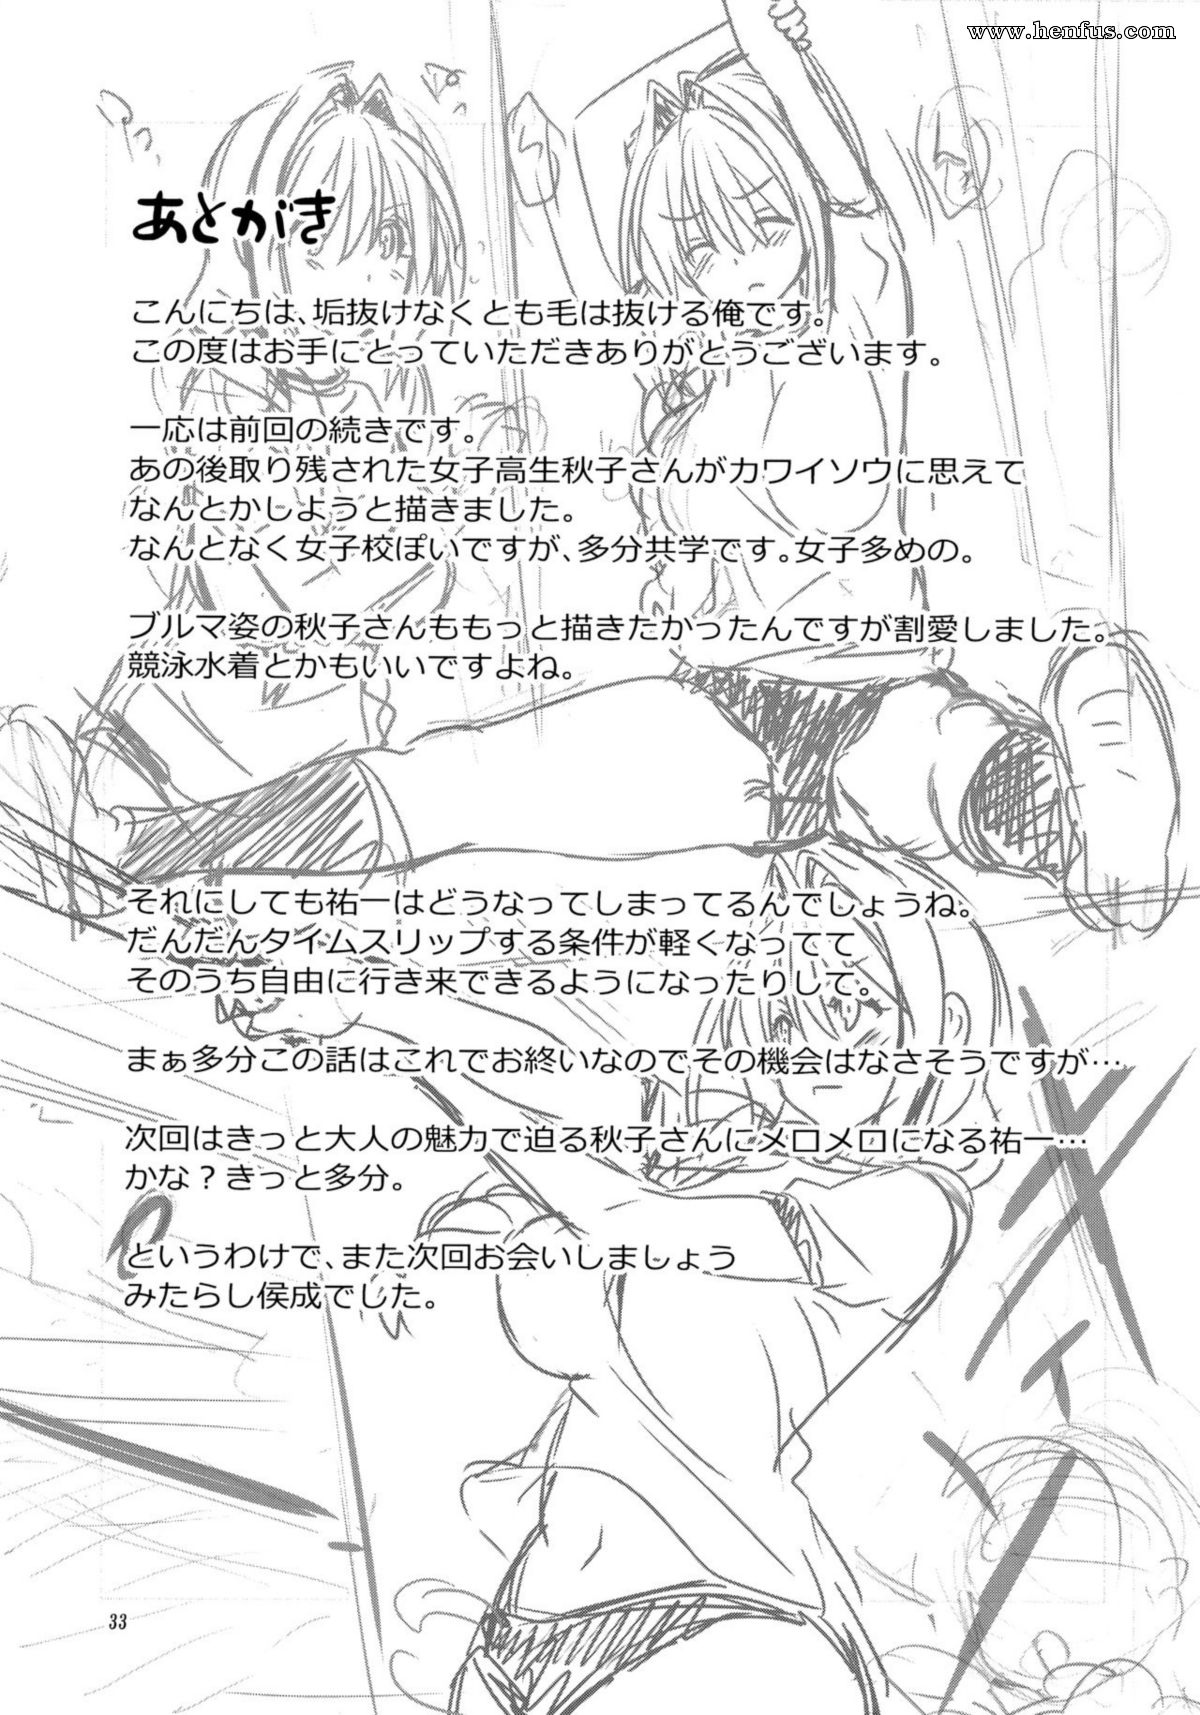 www.henfus.com
あとがき
こんにちは、垢抜けなくとも毛は抜ける俺です。
この度はお手にとっていただきありがとうございます。
一応は前回の続きです。
あの後取り残された女子高生秋子さんがカワイソウに思えて
なんとかしようと描きました。
なんとなく女子校ぽいですが、多分共学です。女子多めの。
ブルマ姿の秋子さんももっと描きたかったんですが割愛しました。
競泳水着とかもいいですよね。
それにしても祐一はどうなってしまってるんでしょうね。
だんだんタイムスリップする条件が軽くなってて
そのうち自由に行き来できるようになったりして。
まぁ多分この話はこれでお終いなのでその機会はなさそうですが…
次回はきっと大人の魅力で迫る秋子さんにメロメロになる祐一…
かな？きっと多分。
というわけで、また次回お会いしましょう
みたらし侯成でした。
33